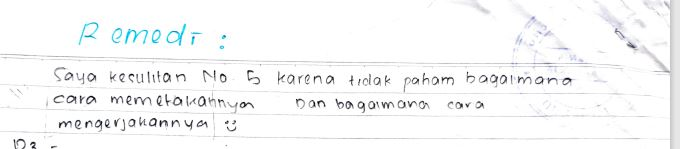 Remedi :
Saya kesulitan No 5 karena tidak paham bagaimana
cara memetakannya Dan bagaimana cara
mengerjakannya ü